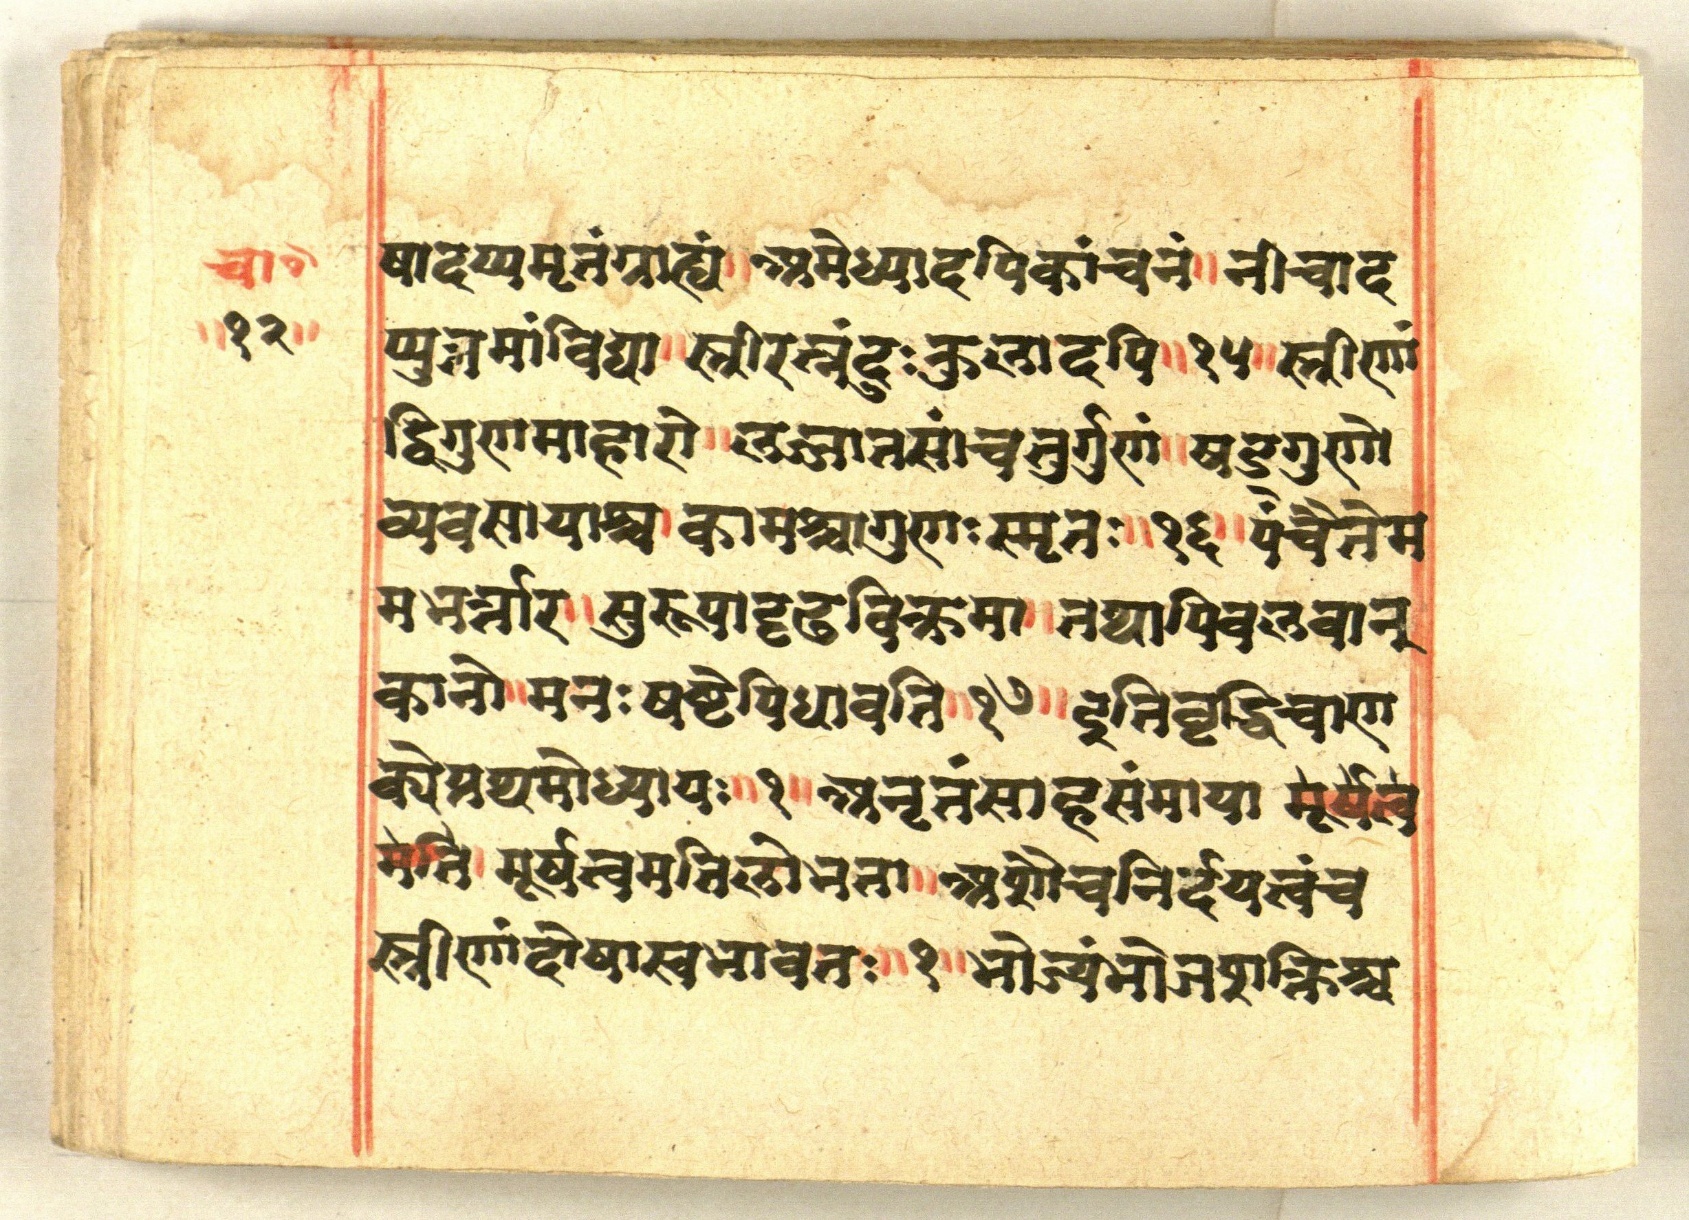 चा॰
॥१२॥
षादप्यमृतंग्राह्यं॥अमेध्यादपिकांचनं॥नीचाद
प्युत्तमांविद्या॥स्त्रीरत्नंदुःकुलादपि॥१५॥स्त्रीणां
द्विगुणमाहारो॥लज्जातसांचतुर्गुणं॥षड्गुणो
व्यवसायाश्च।कामश्चागुणःस्मृतः॥१६॥पंचैतेम
मभर्त्तार॥सुरूपादृढविक्रमा॥तथापिबलवान्
कातो॥मनःषष्टेपिधावति॥१७॥इतिवृद्धिचाण
क्येप्रथमोध्यायः॥१॥अनृतंसाहसंमाया मूर्षत्व
मति। मूर्षत्वमतिलोभता॥अशौचनिर्दयत्वंच
स्त्रीणांदोषास्वभावतः॥१॥भोज्यंभोजशक्तिश्च